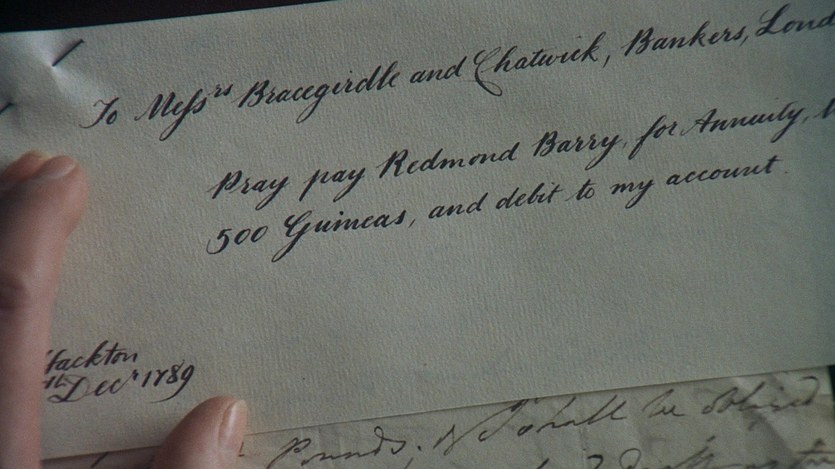 To Messrs Bracegirdle and Chatwick, Bankers, Lond
Pray pay Redmond Barry, for Annuity,
500 Guineas, and debit to my account.
Hackton
th Decr 1789
Pounds; & I shall be obliged